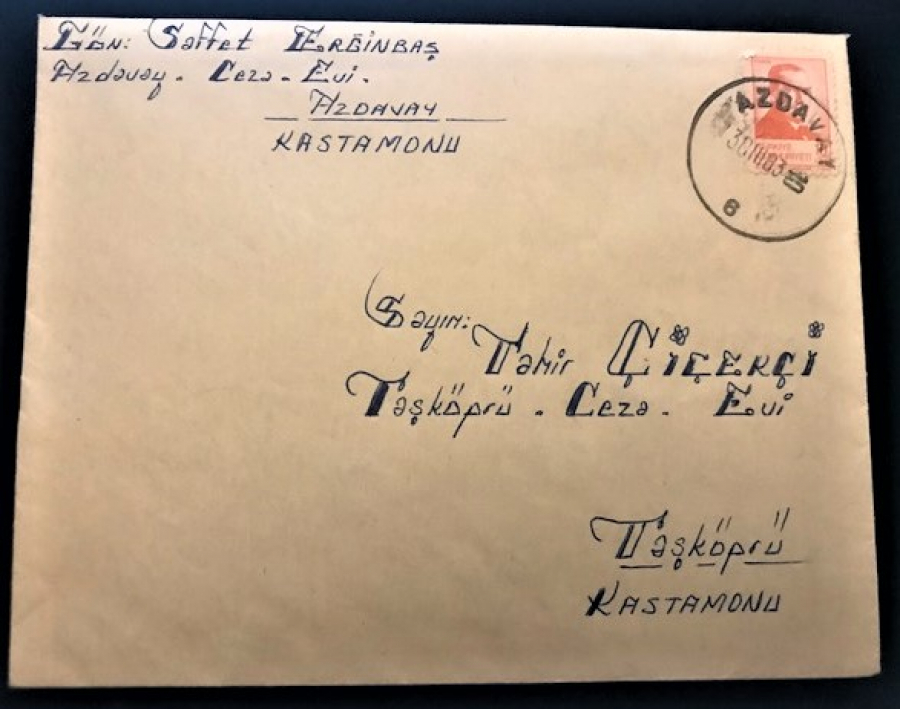 Gön: Saffet ERGİNBAŞ
Azdavay - Ceza - Evi.
AZDAVAY
KASTAMONU
AZDAVAY
6
Sayın:
Tahir ÇİÇEKÇİ
Taşköprü - Ceza - Evi
Taşköprü
KASTAMONU